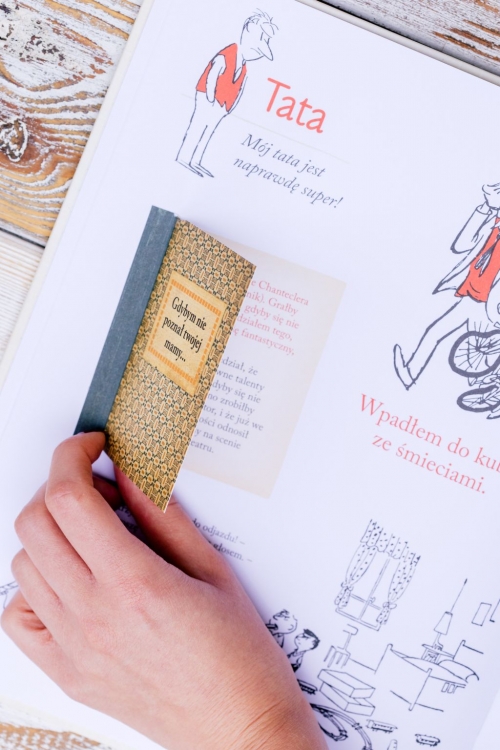 Tata
Mój tata jest
naprawdę super!
Gdybym nie
poznał twojej
mamy...
Chanteclera
nik). Grałby
gdyby się nie
działem tego,
fantastyczny,
dział, że
talenty
gdyby się nie
zrobiłby
i że już we
odnosił
y na scenie
teatru.
Wpadłem do ku
ze śmieciami.
do odjazdu! –
głosem. –